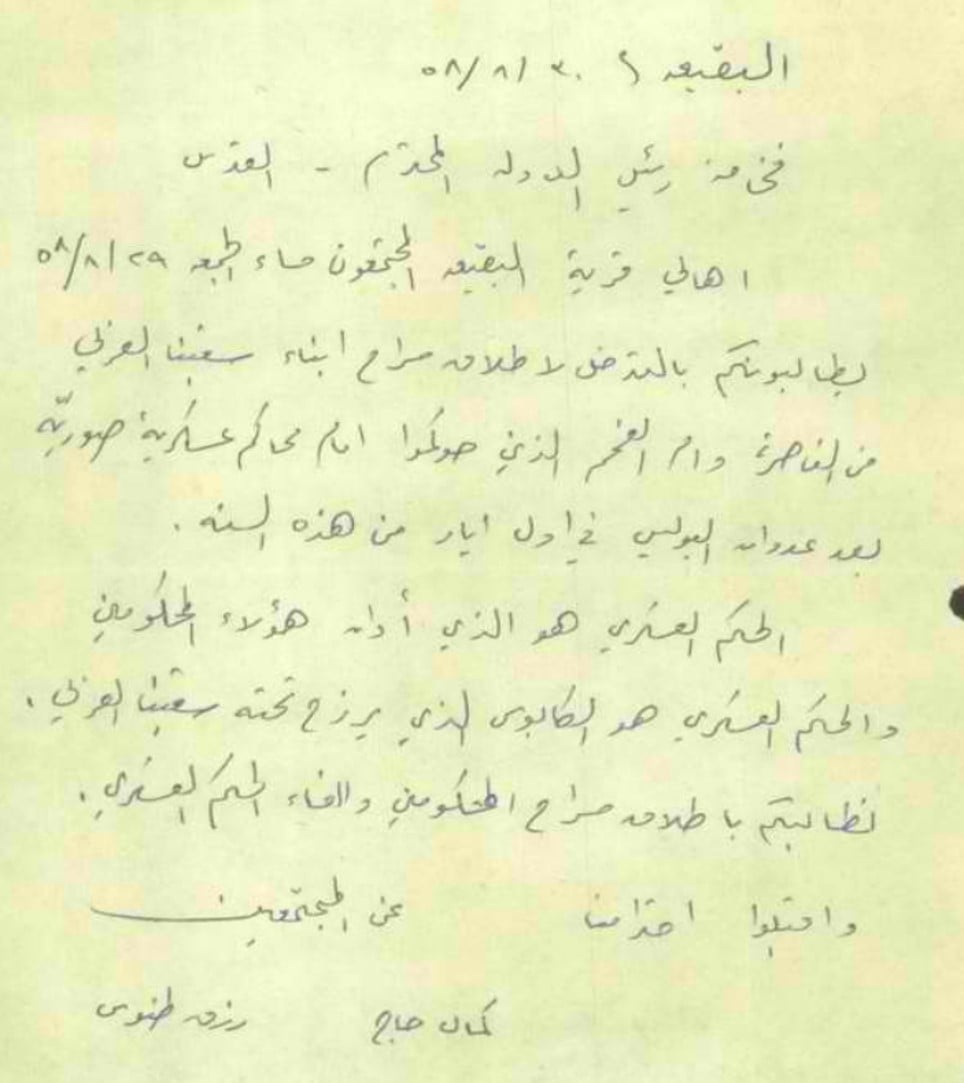 البقيعه في ٣٠/٨/٥٨
فخامة رئيس الدوله المحترم - القدس
اهالي قرية البقيعه المجتمعون مساء الجمعه ٢٩/٨/٥٨
يطالبونكم بالتدخل لاطلاق سراح ابناء شعبنا العربي
من الناصرة وام الفحم الذين حوكموا امام محاكم عسكرية صوريّه
بعد عدوان البوليس في اول ايار من هذه السنه .
الحكم العسكري هو الذي أدان هؤلاء المحكومين
والحكم العسكري هو الكابوس الذي يرزح تحته شعبنا العربي .
نطالبكم باطلاق سراح المحكومين والغاء الحكم العسكري .
واقبلوا احترامنا عن المجتمعين
كمال حاج رزق طنوس